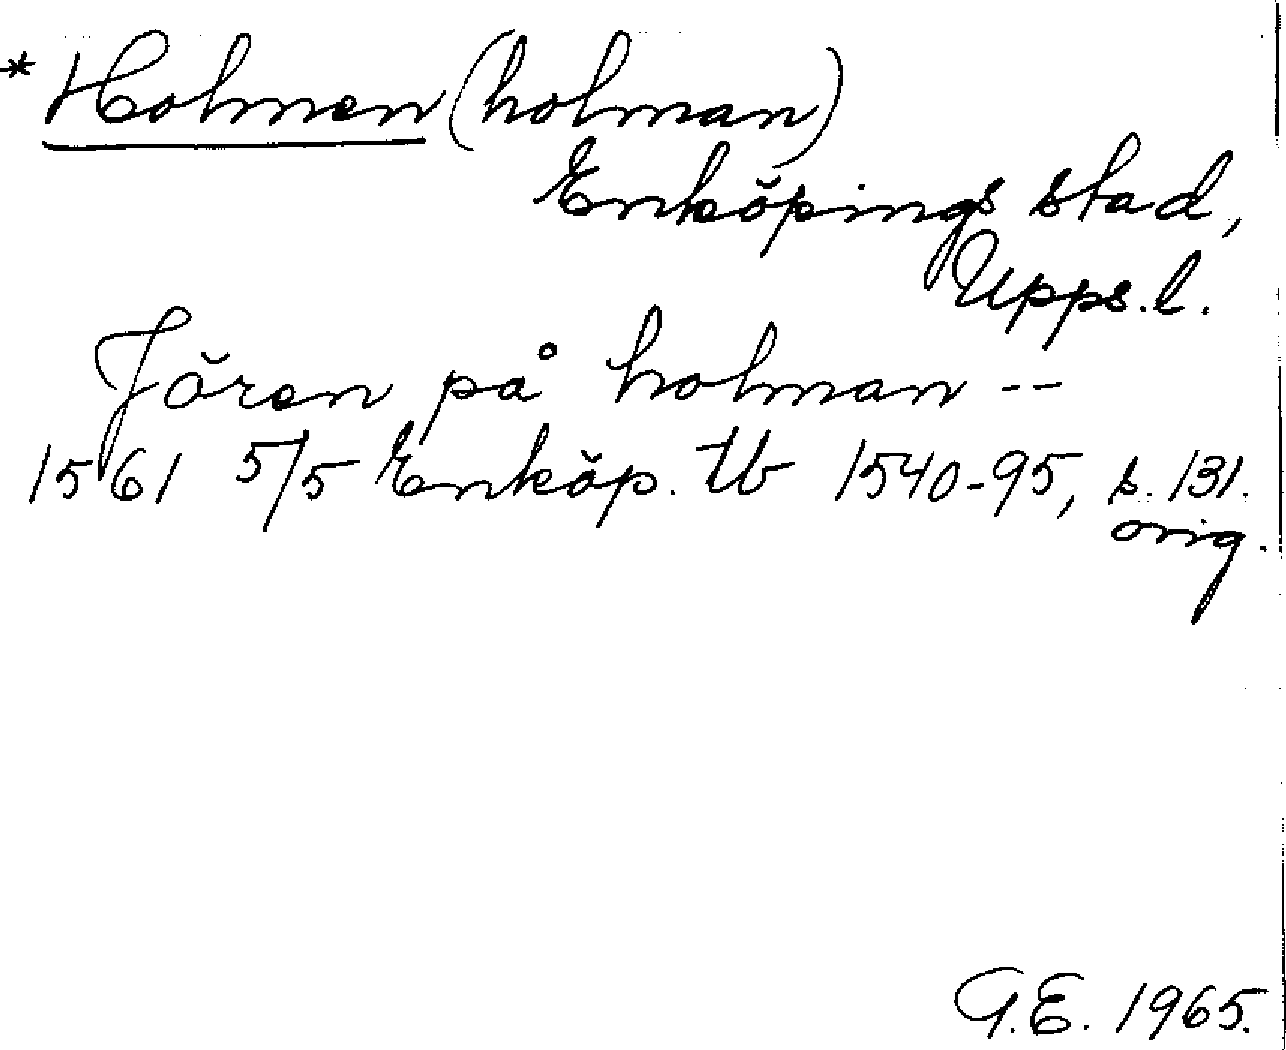 * Holmen (holman)
Enköpings stad,
Upps. l.
Jören på holman --
1561 5/5 Enköp. tb 1540-95, s. 131.
orig.
G.E. 1965.